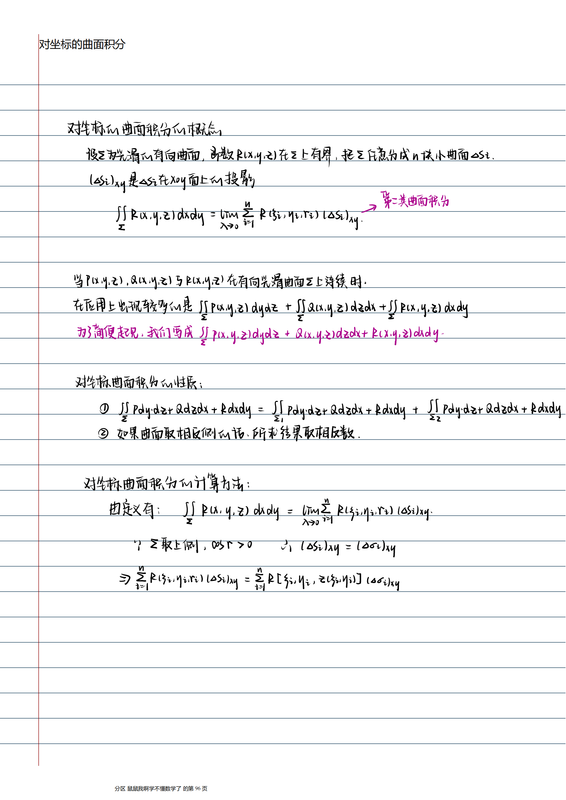 对坐标的曲面积分
对坐标的曲面积分的概念
设Σ为光滑的有向曲面, 函数R(x,y,z)在Σ上有界, 把Σ任意分成n块小曲面ΔSi.
(ΔSi)xy是ΔSi在xoy面上的投影
∬Σ R(x,y,z)dxdy = lim λ→0 Σ i=1 n R(ξi,ηi,ri)(ΔSi)xy. → 第二类曲面积分
当P(x,y,z),Q(x,y,z)与R(x,y,z)在有向光滑曲面Σ上连续时.
在应用上出现较多的是 ∬Σ P(x,y,z)dydz + ∬Σ Q(x,y,z)dzdx + ∬Σ R(x,y,z)dxdy
为了简便起见, 我们写成 ∬Σ P(x,y,z)dydz + Q(x,y,z)dzdx + R(x,y,z)dxdy.
对坐标曲面积分的性质:
① ∬Σ Pdy·dz+Qdzdx+Rdxdy = ∬Σ1 Pdy·dz+Qdzdx+Rdxdy + ∬Σ2 Pdy·dz+Qdzdx+Rdxdy
② 如果曲面取相反侧的话, 所求结果取相反数.
对坐标曲面积分的计算方法:
由定义有: ∬Σ R(x,y,z)dxdy = lim λ→0 Σ i=1 n R(ξi,ηi,ri)(ΔSi)xy.
∵ Σ取上侧, cos r > 0 ∴ (ΔSi)xy = (Δσi)xy
⇒ Σ i=1 n R(ξi,ηi,ri)(ΔSi)xy = Σ i=1 n R[ξi,ηi,z(ξi,ηi)](Δσi)xy
分区 鼠鼠我啊学不懂数学了 的第 96 页